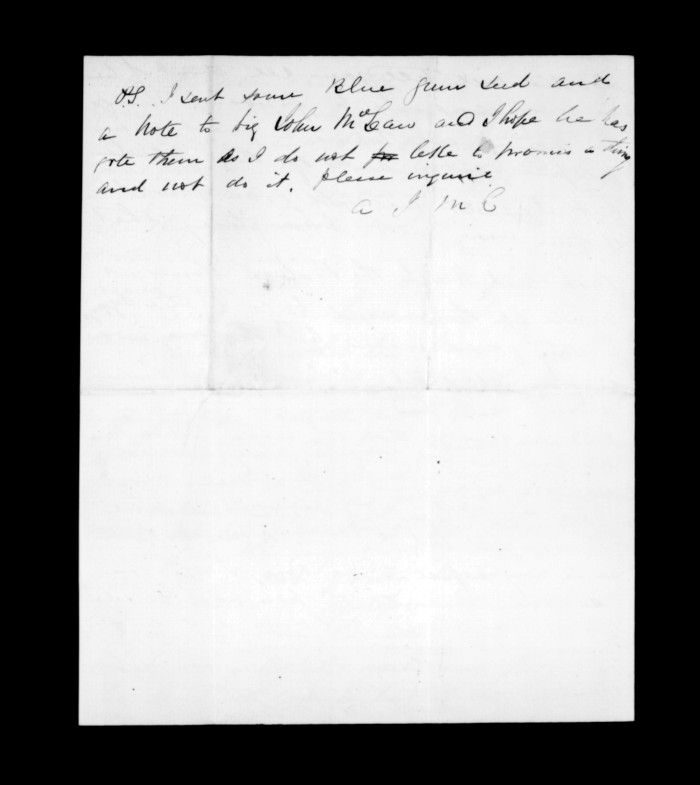 P.S. I sent some Blue gum seed and
a Note to big John McCaw and I hope he has
gote them as I do not like to promis a thing
and not do it. Please inquire
A J McC